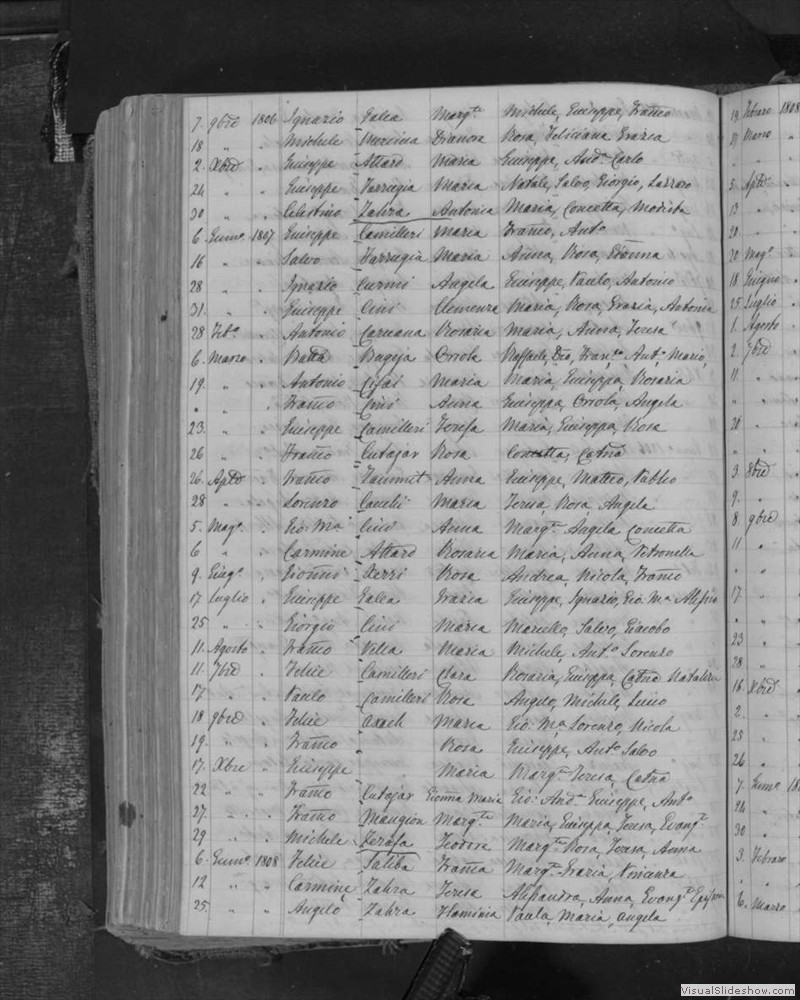 7. 9bre 1806 Ignazio Galea Marg.ta Michele, Giuseppe, Franco
18 " " Michele Dianora Rosa, Feliciana, Grazia
2. Xbre " Giuseppe Attard Maria Giuseppe, And.a Carlo
24 " " Giuseppe Farrugia Maria Natale, Salvo, Giorgio, Lazzaro
30 " " Celestino Zahra Antonia Maria, Concetta, Modesta
6 Genn.o 1807 Giuseppe Camilleri Maria Franco, Ant.o
16 " " Salvo Farrugia Maria Anna, Rosa, Gionna
28 " " Ignazio Curmi Angela Giuseppe, Paulo, Antonio
31. " " Giuseppe Cini Clemenza Maria, Rosa, Grazia, Antonia
28 Feb.o " Antonio Caruana Rosaria Maria, Anna, Teresa
6. Marzo " Batta Bugeja Orsola Raffaele, Ant.o Mario,
19. " " Antonio Maria Maria, Giuseppa, Rosaria
" " " Franco Cini Anna Giuseppa, Orsola, Angela
23. " " Giuseppe Camilleri Josefa Maria, Giuseppa, Rosa
26 " " Franco Cutajar Rosa Concetta, Catna
26. Aple " Franco Zammit Anna Giuseppe, Matteo, Publio
28 " " Lorenzo Maria Teresa, Rosa, Angela
5. Mag.o " Gio. Ma Cini Anna Marg.ta Angela, Concetta
6 " " Carmine Attard Rosaria Maria, Anna, Petronella
9. Giug.o " Gionni Xerri Rosa Andrea, Nicola, Franco
17 Luglio " Giuseppe Galea Grazia Giuseppe, Ignazio, Gio. Ma
25 " " Giorgio Cini Maria Marcello, Salvo, Giacobo
11. Agosto " Franco Vella Maria Michele, Ant.o Lorenzo
11. 7bre " Felice Camilleri Clara Rosaria, Giuseppa, Catna Natalizia
17. " " Paulo Camilleri Rosa Angelo, Michele,
18 9bre " Felice Axach Maria Gio. Ma Lorenzo, Nicola
19. " " Franco Rosa Giuseppe, Ant.o Salvo
17. Xbre " Giuseppe Maria Marg.ta Teresa, Catna
22 " " Franco Cutajar Gionna Maria Gio: And.a Giuseppe, Ant.o
27. " " Franco Mangion Marg.ta Maria, Giuseppa, Teresa, Evang.ta
29 " " Michele Zerafa Teodora Marg.ta Rosa, Teresa, Anna
6. Genn.o 1808 Felice Saliba Franca Marg.ta Grazia, Vincenza
12 " " Carmine Zahra Teresa Alessandra, Anna, Evang.ta
25. " " Angelo Zahra Flaminia Paula, Maria, Angela
19 Febraro 1808
Marzo
5. Aple
13 "
20 "
20 Mag.o
18 Giugno
25 Luglio
1. Agosto
2. 7bre
11 "
" "
20 "
" "
3. 8bre
9. "
8. 9bre
11 "
" "
17 "
" "
23 "
28 "
16. Xbre
2. "
25 "
26 "
7. Genn.o
24 "
30 "
3. Febraro
" "
6. Marzo
VisualSlideshow.com